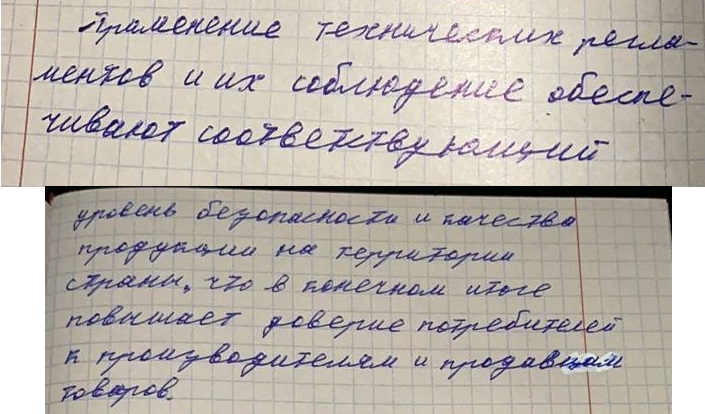 Применение технических регла-
ментов и их соблюдение обеспе-
чивают соответствующий
уровень безопасности и качества
продукции на территории
страны, что в конечном итоге
повышает доверие потребителей
к производителям и продавцам
товаров.